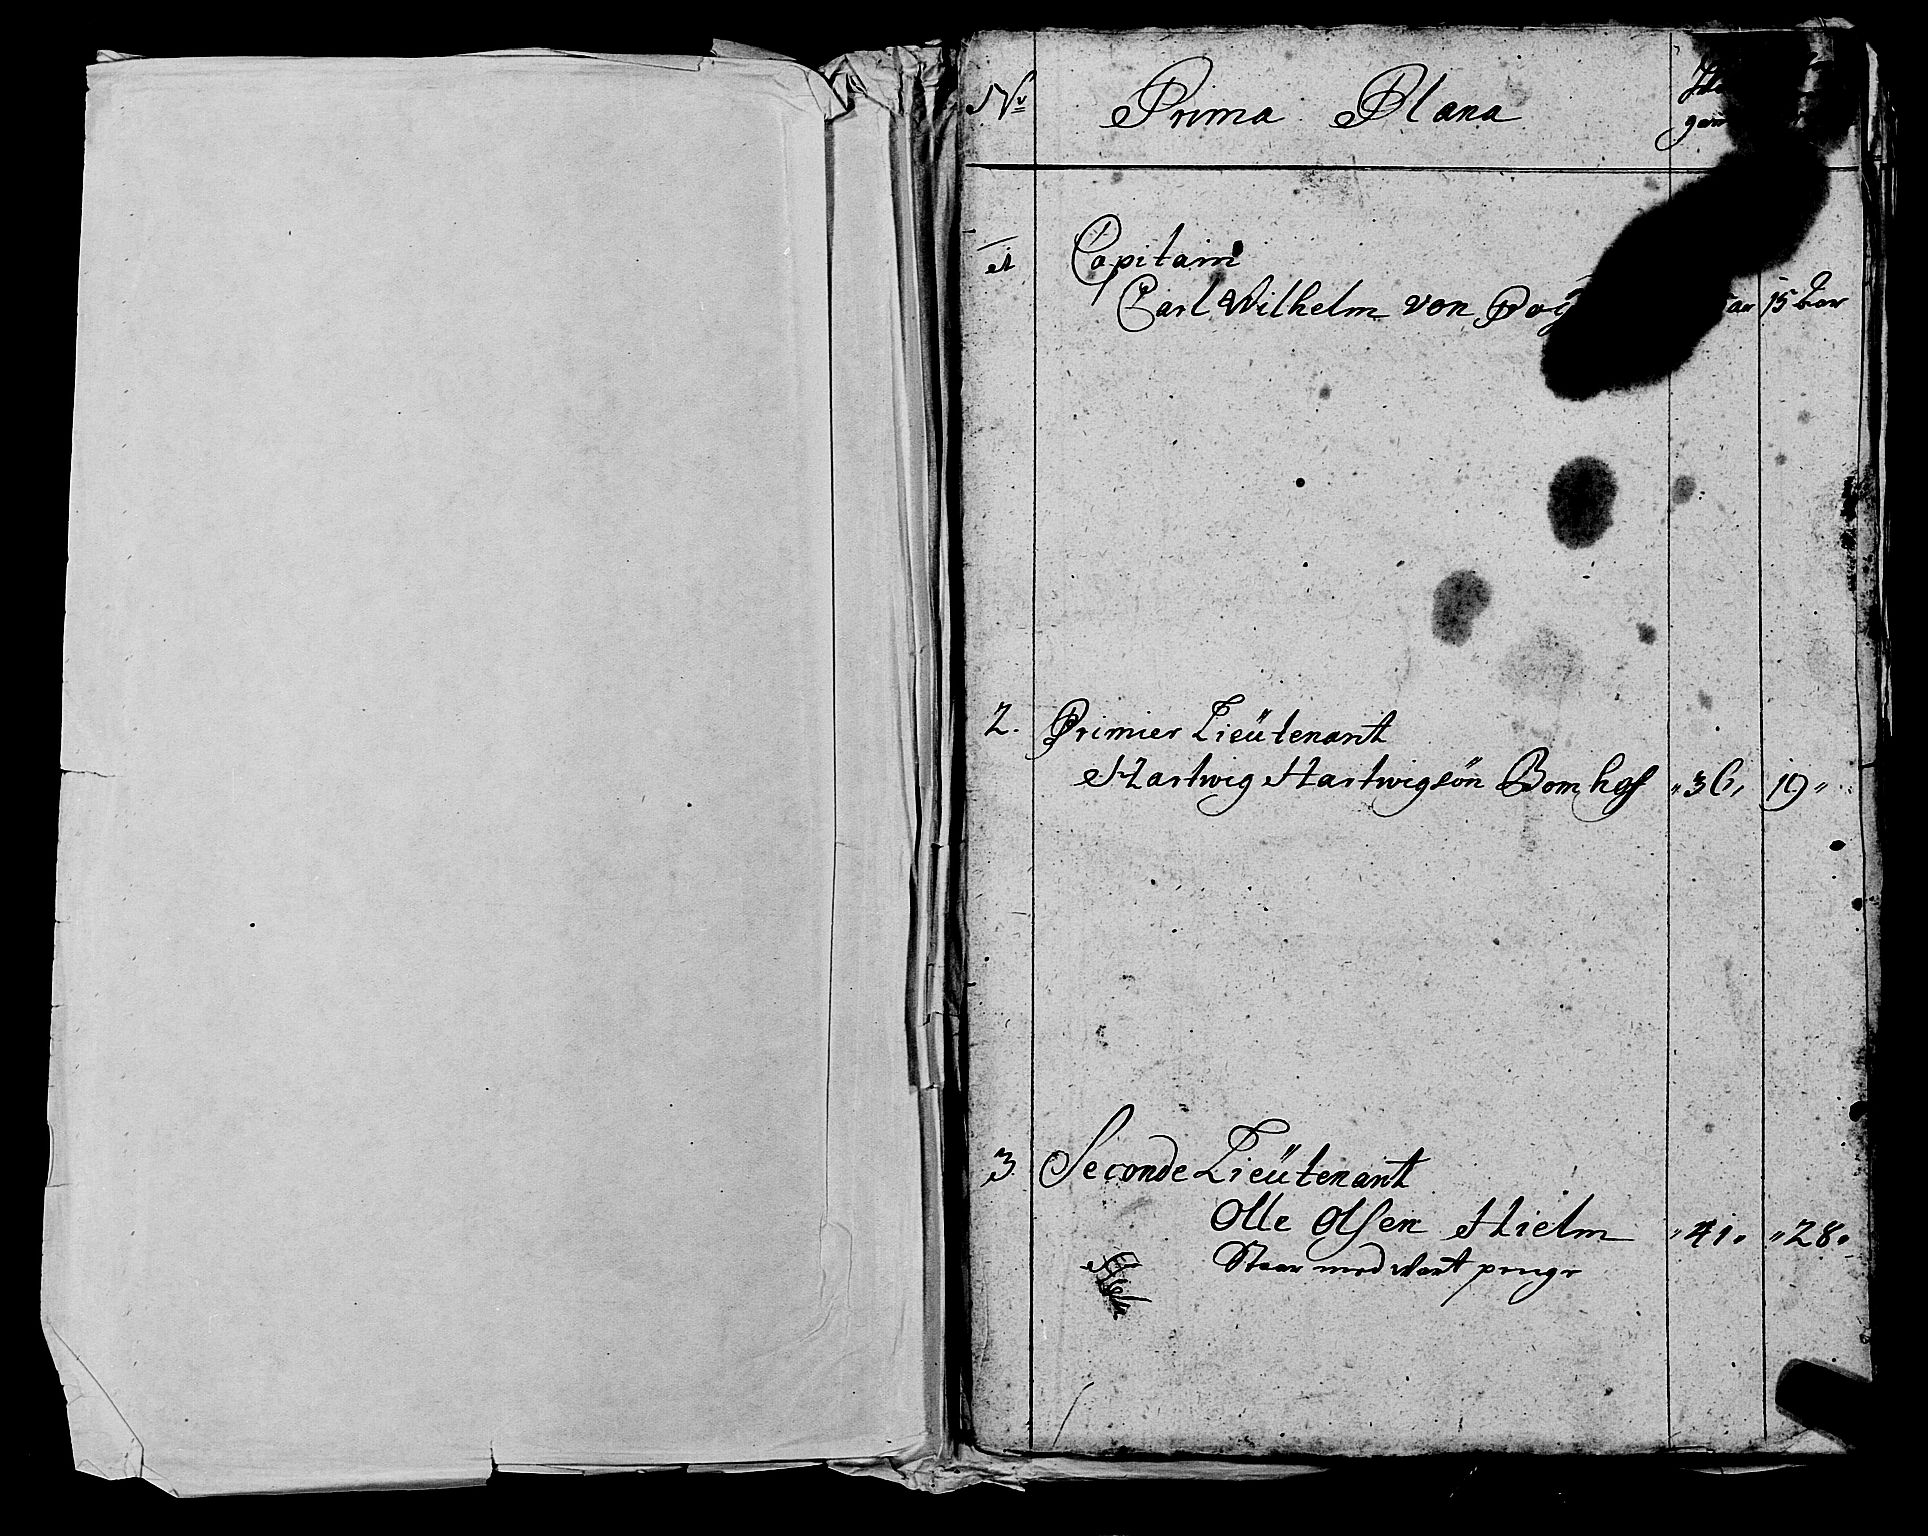 No Prima Plana
1 Capitain
Carl Wilhelm von 15 Aar
2. Primier Lieütenant
Hartwig Hartwigsön Bomhof "36, 19"
3 Seconde Lieütenant
Olle Olsen Hielm "41" "28"
Staar med Vart penge